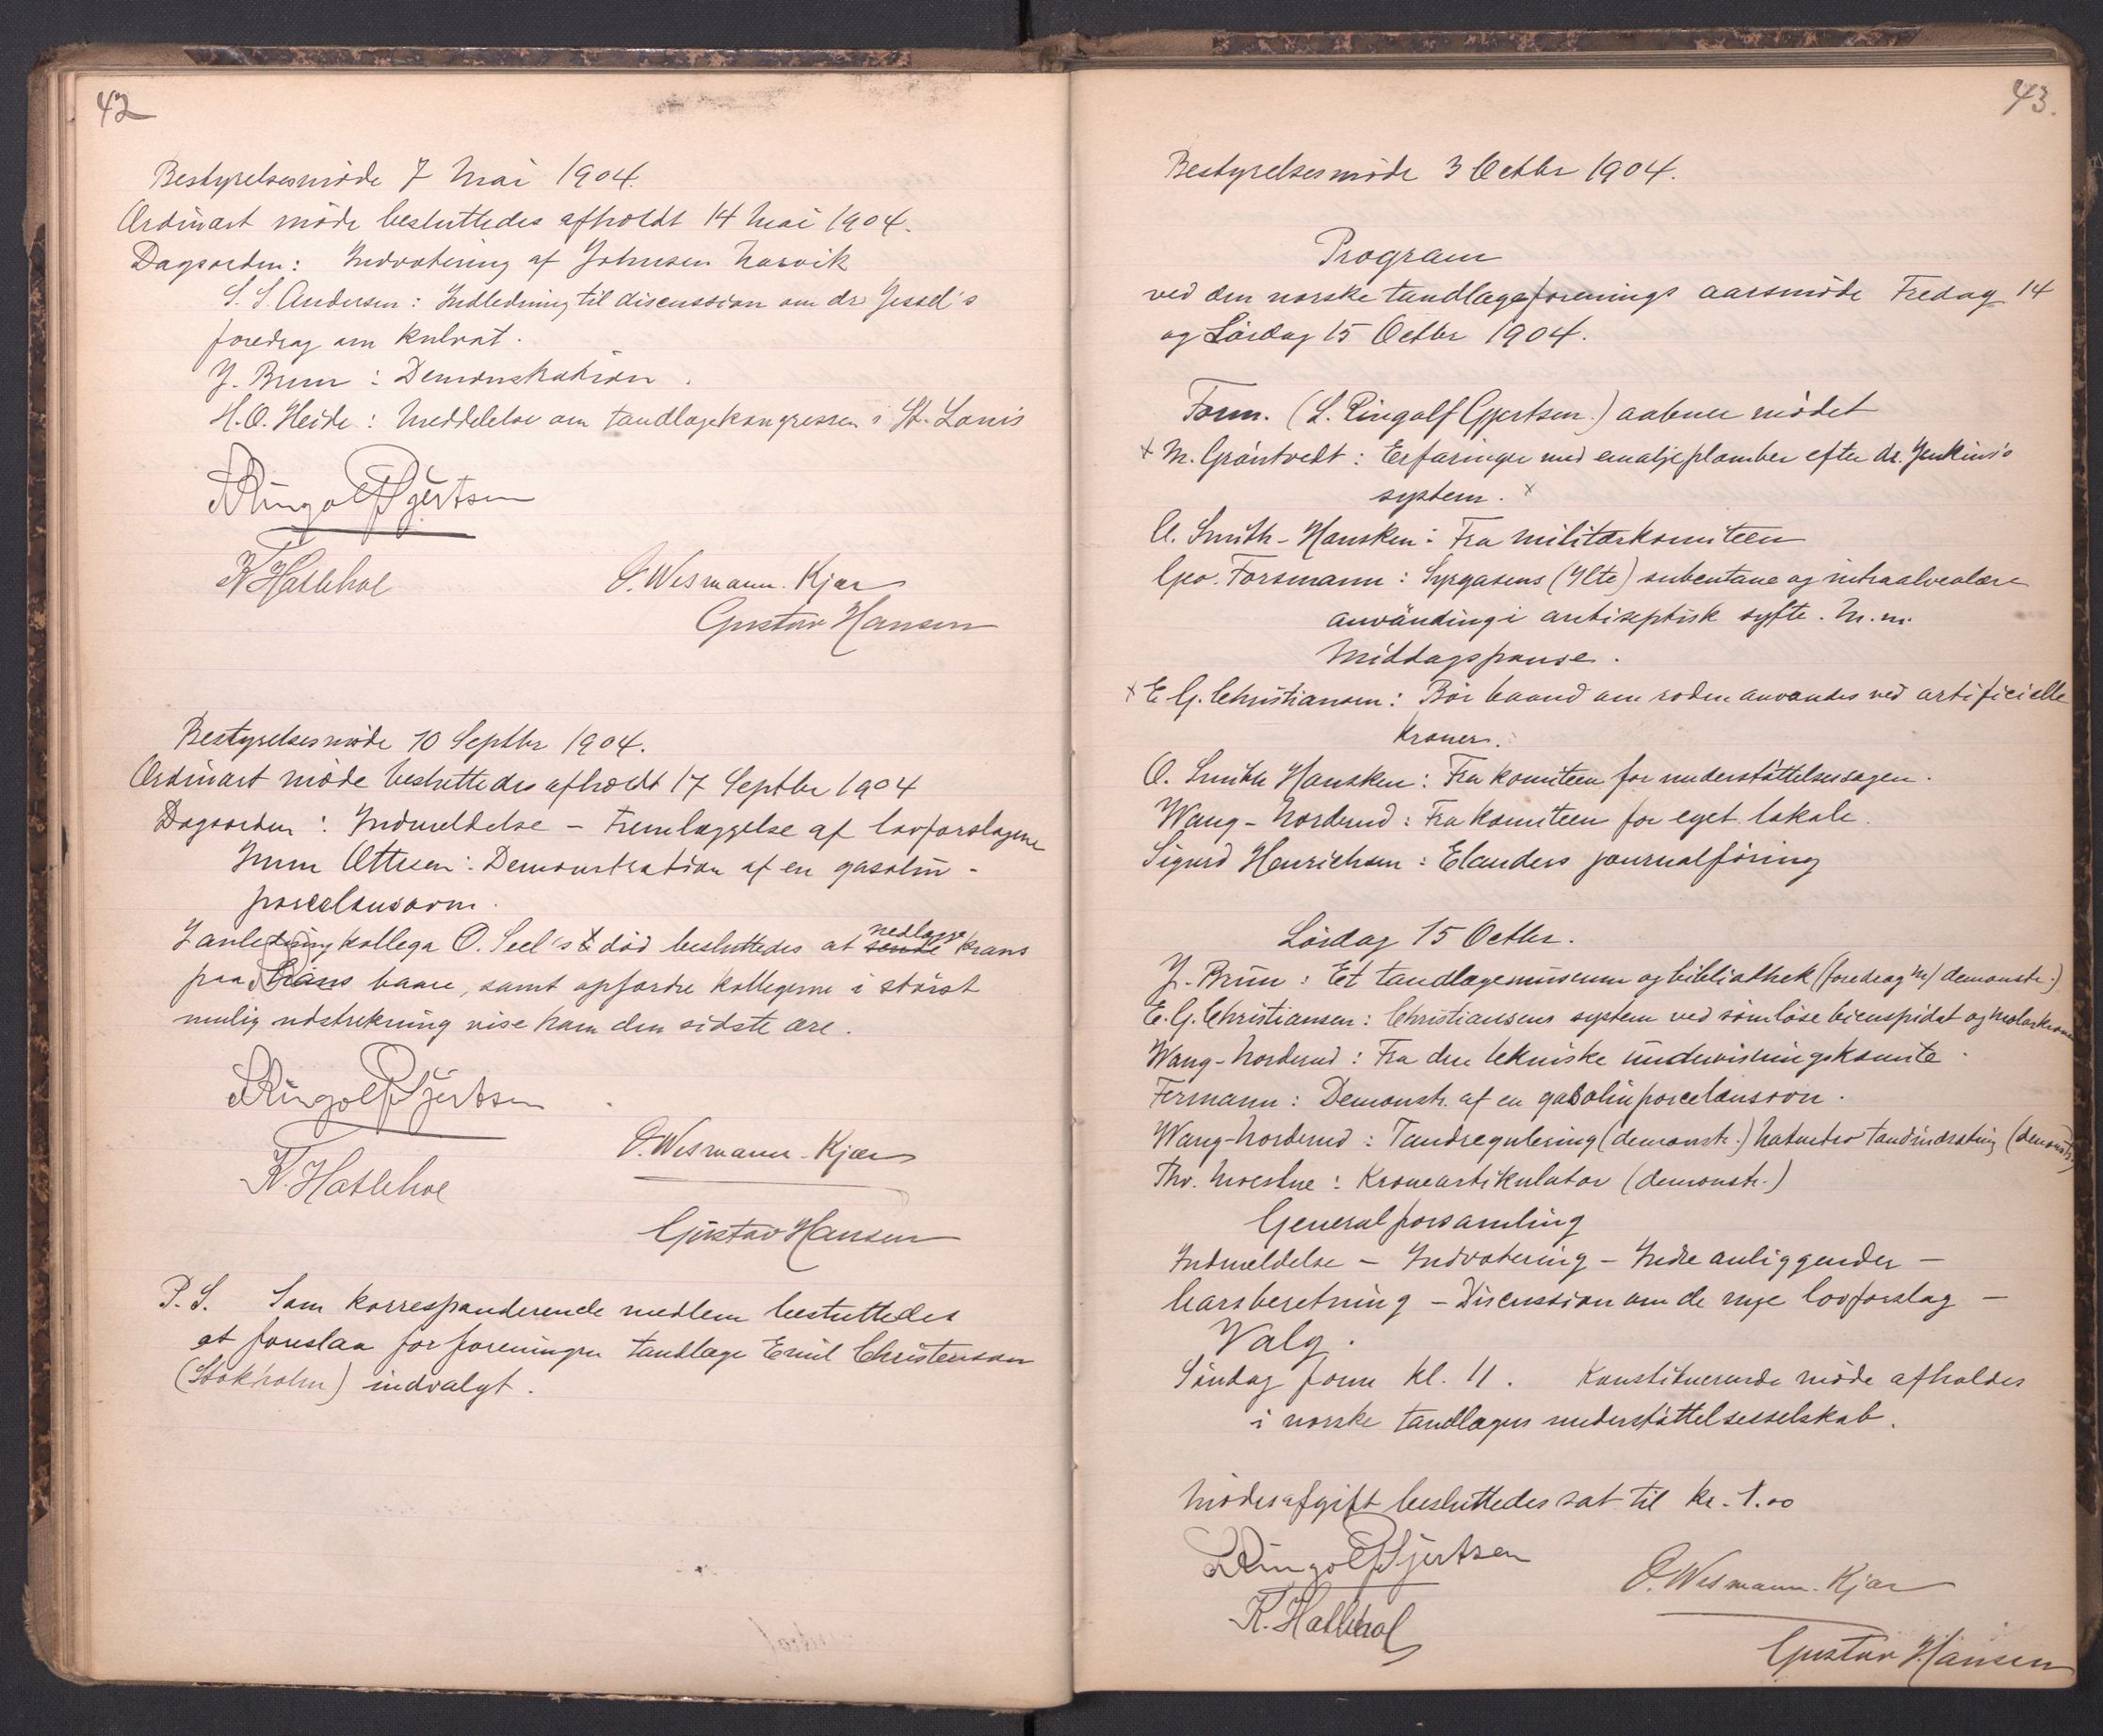 42
Bestyrelsesmøde 7 Mai 1904.
Ordinært møde besluttedes afholdt 14 Mai 1904.
Dagsorden: Indvotering af Johnsen Narvik
S. S. Andersen: Indledning til discussion om dr Jessel's
foredrag om kulrat.
J. Brun: Demonstration.
H. O. Heide: Meddelelse om tandlægekongressen i St. Louis
L Ringolf Gjertsen
K Hatlehol
O. Wesmann-Kjær
Gustav Hansen
Bestyrelsesmøde 10 Septbr 1904.
Ordinært møde besluttedes afholdt 17 Septbr 1904
Dagsorden: Indmeldelse – Fremlæggelse af lovforslagene
Ottesen: Demonstration af en gasolin-
porcelænsovn.
I anledning kollega O. Seel's død besluttedes at sende nedlægge krans
paa hans baare, samt opfordre kollegerne i størst
mulig udstrekning vise ham den sidste ære.
L Ringolf Gjertsen
O. Wesmann-Kjær
K. Hatlehol
Gustav Hansen
P. S. Som korresponderende medlem besluttedes
at foreslaa for foreningen tandlæge Emil Christenson
(Stokholm) indvalgt.
43.
Bestyrelsesmøde 3 Octbr 1904.
Program
ved den norske tandlægeforenings aarsmøde Fredag 14
og Lørdag 15 Octbr 1904.
Form. (L. Ringolf Gjertsen.) aabner mødet
x M. Grøntvedt: Erfaringer med emaljeplomber efter dr. Jenkins's
system. x
O. Smith-Hansken: Fra militærkomiteen
Geo. Forsmann: Syrgasens (Ilte) subcutane og intraalveolære
användning i antiseptisk syfte. M. m.
Middagspause.
x E. G. Christiansen: Bør baand om roden anvendes ved artificielle
kroner.
O. Smith Hansken: Fra komiteen for understøttelsessagen.
Wang-Norderud: Fra komiteen for eget lokale.
Sigurd Henrichsen: Elanders journalføring
Lørdag 15 Octbr.
J. Brun: Et tandlægemuseum og bibliothek (foredrag m/ demonstr.)
E. G. Christiansen: Christiansens system ved sømløse bicuspidat og molarkroner
Wang-Norderud: Fra den tekniske undervisningskomite.
Fermann: Demonstr. af en gasolinporcelænsovn.
Wang-Norderud: Tandregulering (demonstr.) Naturtro tandindsætning (demonstr.)
Thv. Moestue: Kroneartikulator (demonstr.)
Generalforsamling
Indmeldelse – Indvotering – Indre anliggender –
Aarsberetning – Discussion om de nye lovforslag –
Valg.
Søndag form kl. 11. Konstituerende møde afholdes
i norske tandlægers understøttelsesselskab.
Mødesafgift besluttedes sat til kr. 1.00
L Ringolf Gjertsen
O. Wesmann-Kjær
K. Hatlehol
Gustav Hansen